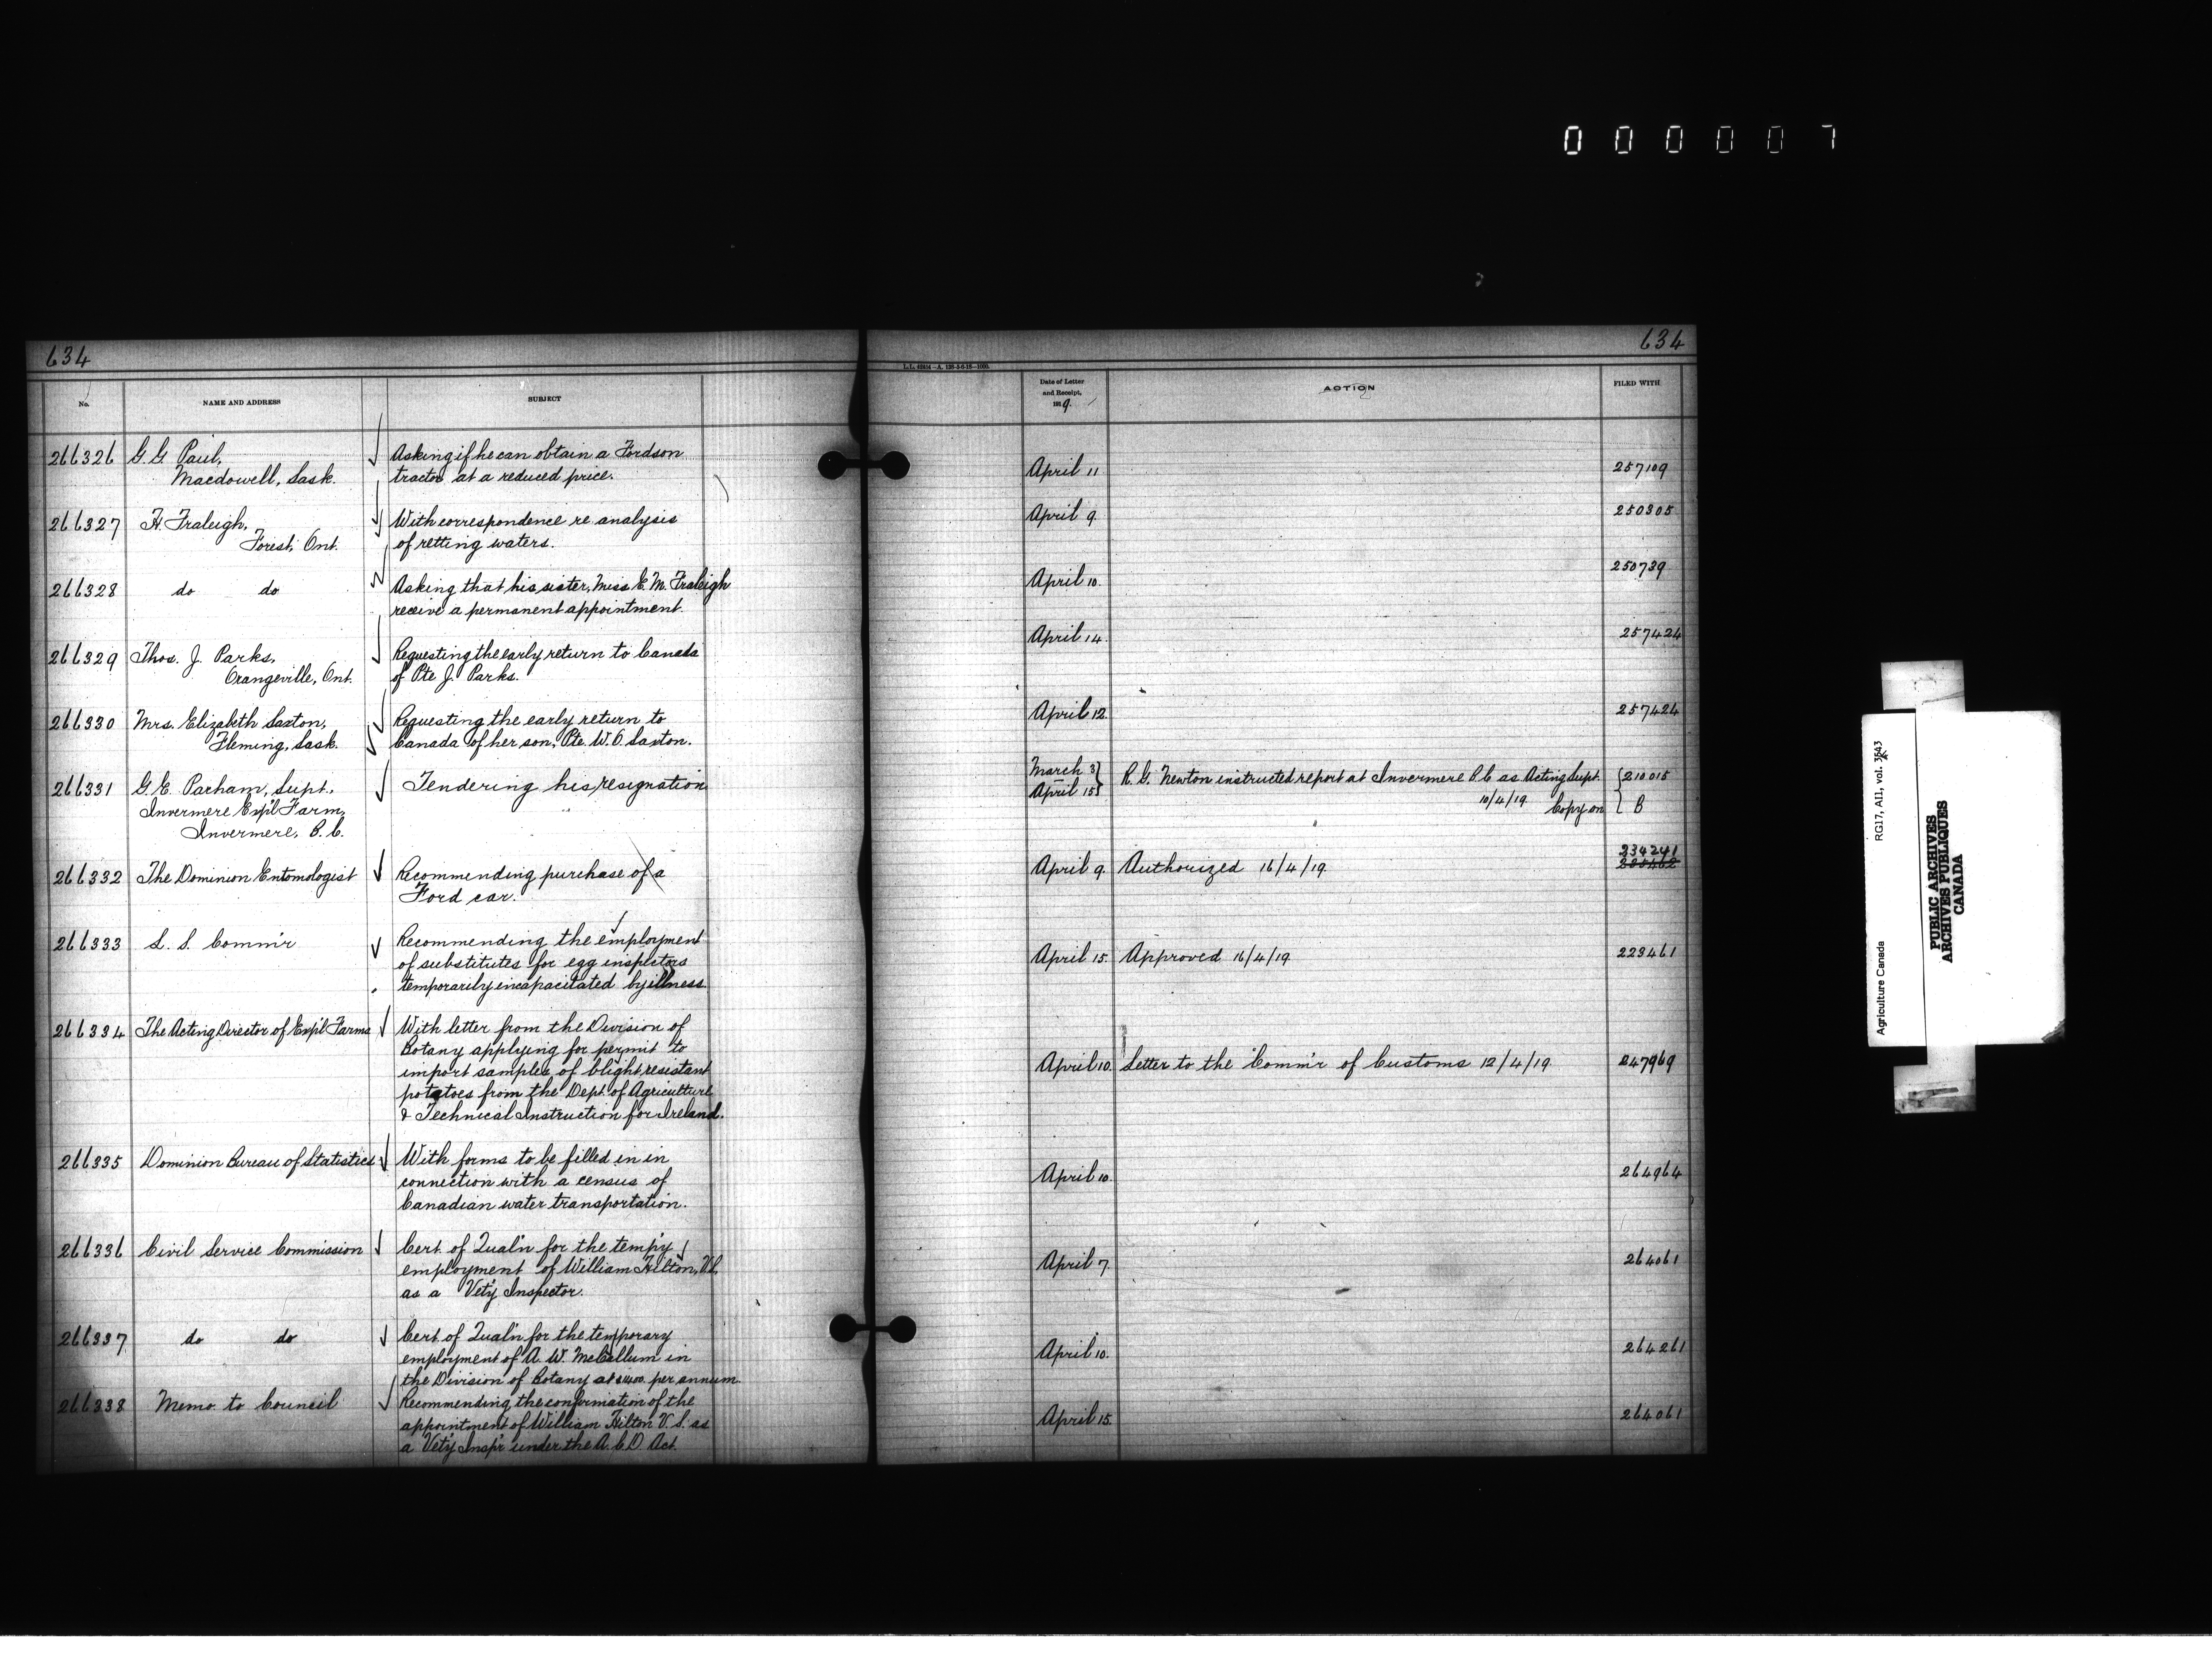 0 0 0 0 0 7
634
No.
NAME AND ADDRESS
SUBJECT
266326
G. G. Paul,
Macdowell, Sask.
Asking if he can obtain a Fordson
tractor at a reduced price.
266327
H. Fraleigh,
Forest, Ont.
With correspondence re analysis
of retting waters.
266328
do do
Asking that his sister, Miss E. M. Fraleigh
receive a permanent appointment.
266329
Thos. J. Parks,
Orangeville, Ont.
Requesting the early return to Canada
of Pte J. Parks.
266330
Mrs. Elizabeth Saxton,
Fleming, Sask.
Requesting the early return to
Canada of her son, Pte. W. O. Saxton.
266331
G. E. Parham, Supt.,
Invermere Exp'l Farm,
Invermere, B. C.
Tendering his resignation
266332
The Dominion Entomologist
Recommending purchase of a
Ford car.
266333
L. S. Comm'r
Recommending the employment
of substitutes for egg inspectors
temporarily incapacitated by illness.
266334
The Acting Director of Exp'l Farms
With letter from the Division of
Botany applying for permit to
import samples of blight resistant
potatoes from the Dept. of Agriculture
& Technical Instruction for Ireland.
266335
Dominion Bureau of Statistics
With forms to be filled in in
connection with a census of
Canadian water transportation.
266336
Civil Service Commission
Cert. of Qual'n for the temp'y
employment of William Hilton, V.S.
as a Vet'y Inspector.
266337
do do
Cert. of Qual'n for the temporary
employment of A. W. McCallum in
the Division of Botany at $1400. per annum.
266338
Memo. to Council
Recommending the confirmation of the
appointment of William Hilton V. S. as
a Vet'y Insp'r under the A. C. D. Act.
634
Date of Letter
and Receipt,
1919.
ACTION
FILED WITH
April 11
257109
April 9.
250305
April 10.
250739
April 14.
257424
April 12.
257424
March 3
April 15
R. G. Newton instructed report at Invermere B. C. as Acting Supt.
10/4/19. Copy on
210015
B
April 9.
Authorized 16/4/19.
234241
April 15.
Approved 16/4/19.
223461
April 10.
Letter to the Comm'r of Customs 12/4/19.
247969
April 10.
264964
April 7.
264061
April 10.
264261
April 15.
264061
Agriculture Canada RG17, AII, vol.
PUBLIC ARCHIVES
ARCHIVES PUBLIQUES
CANADA